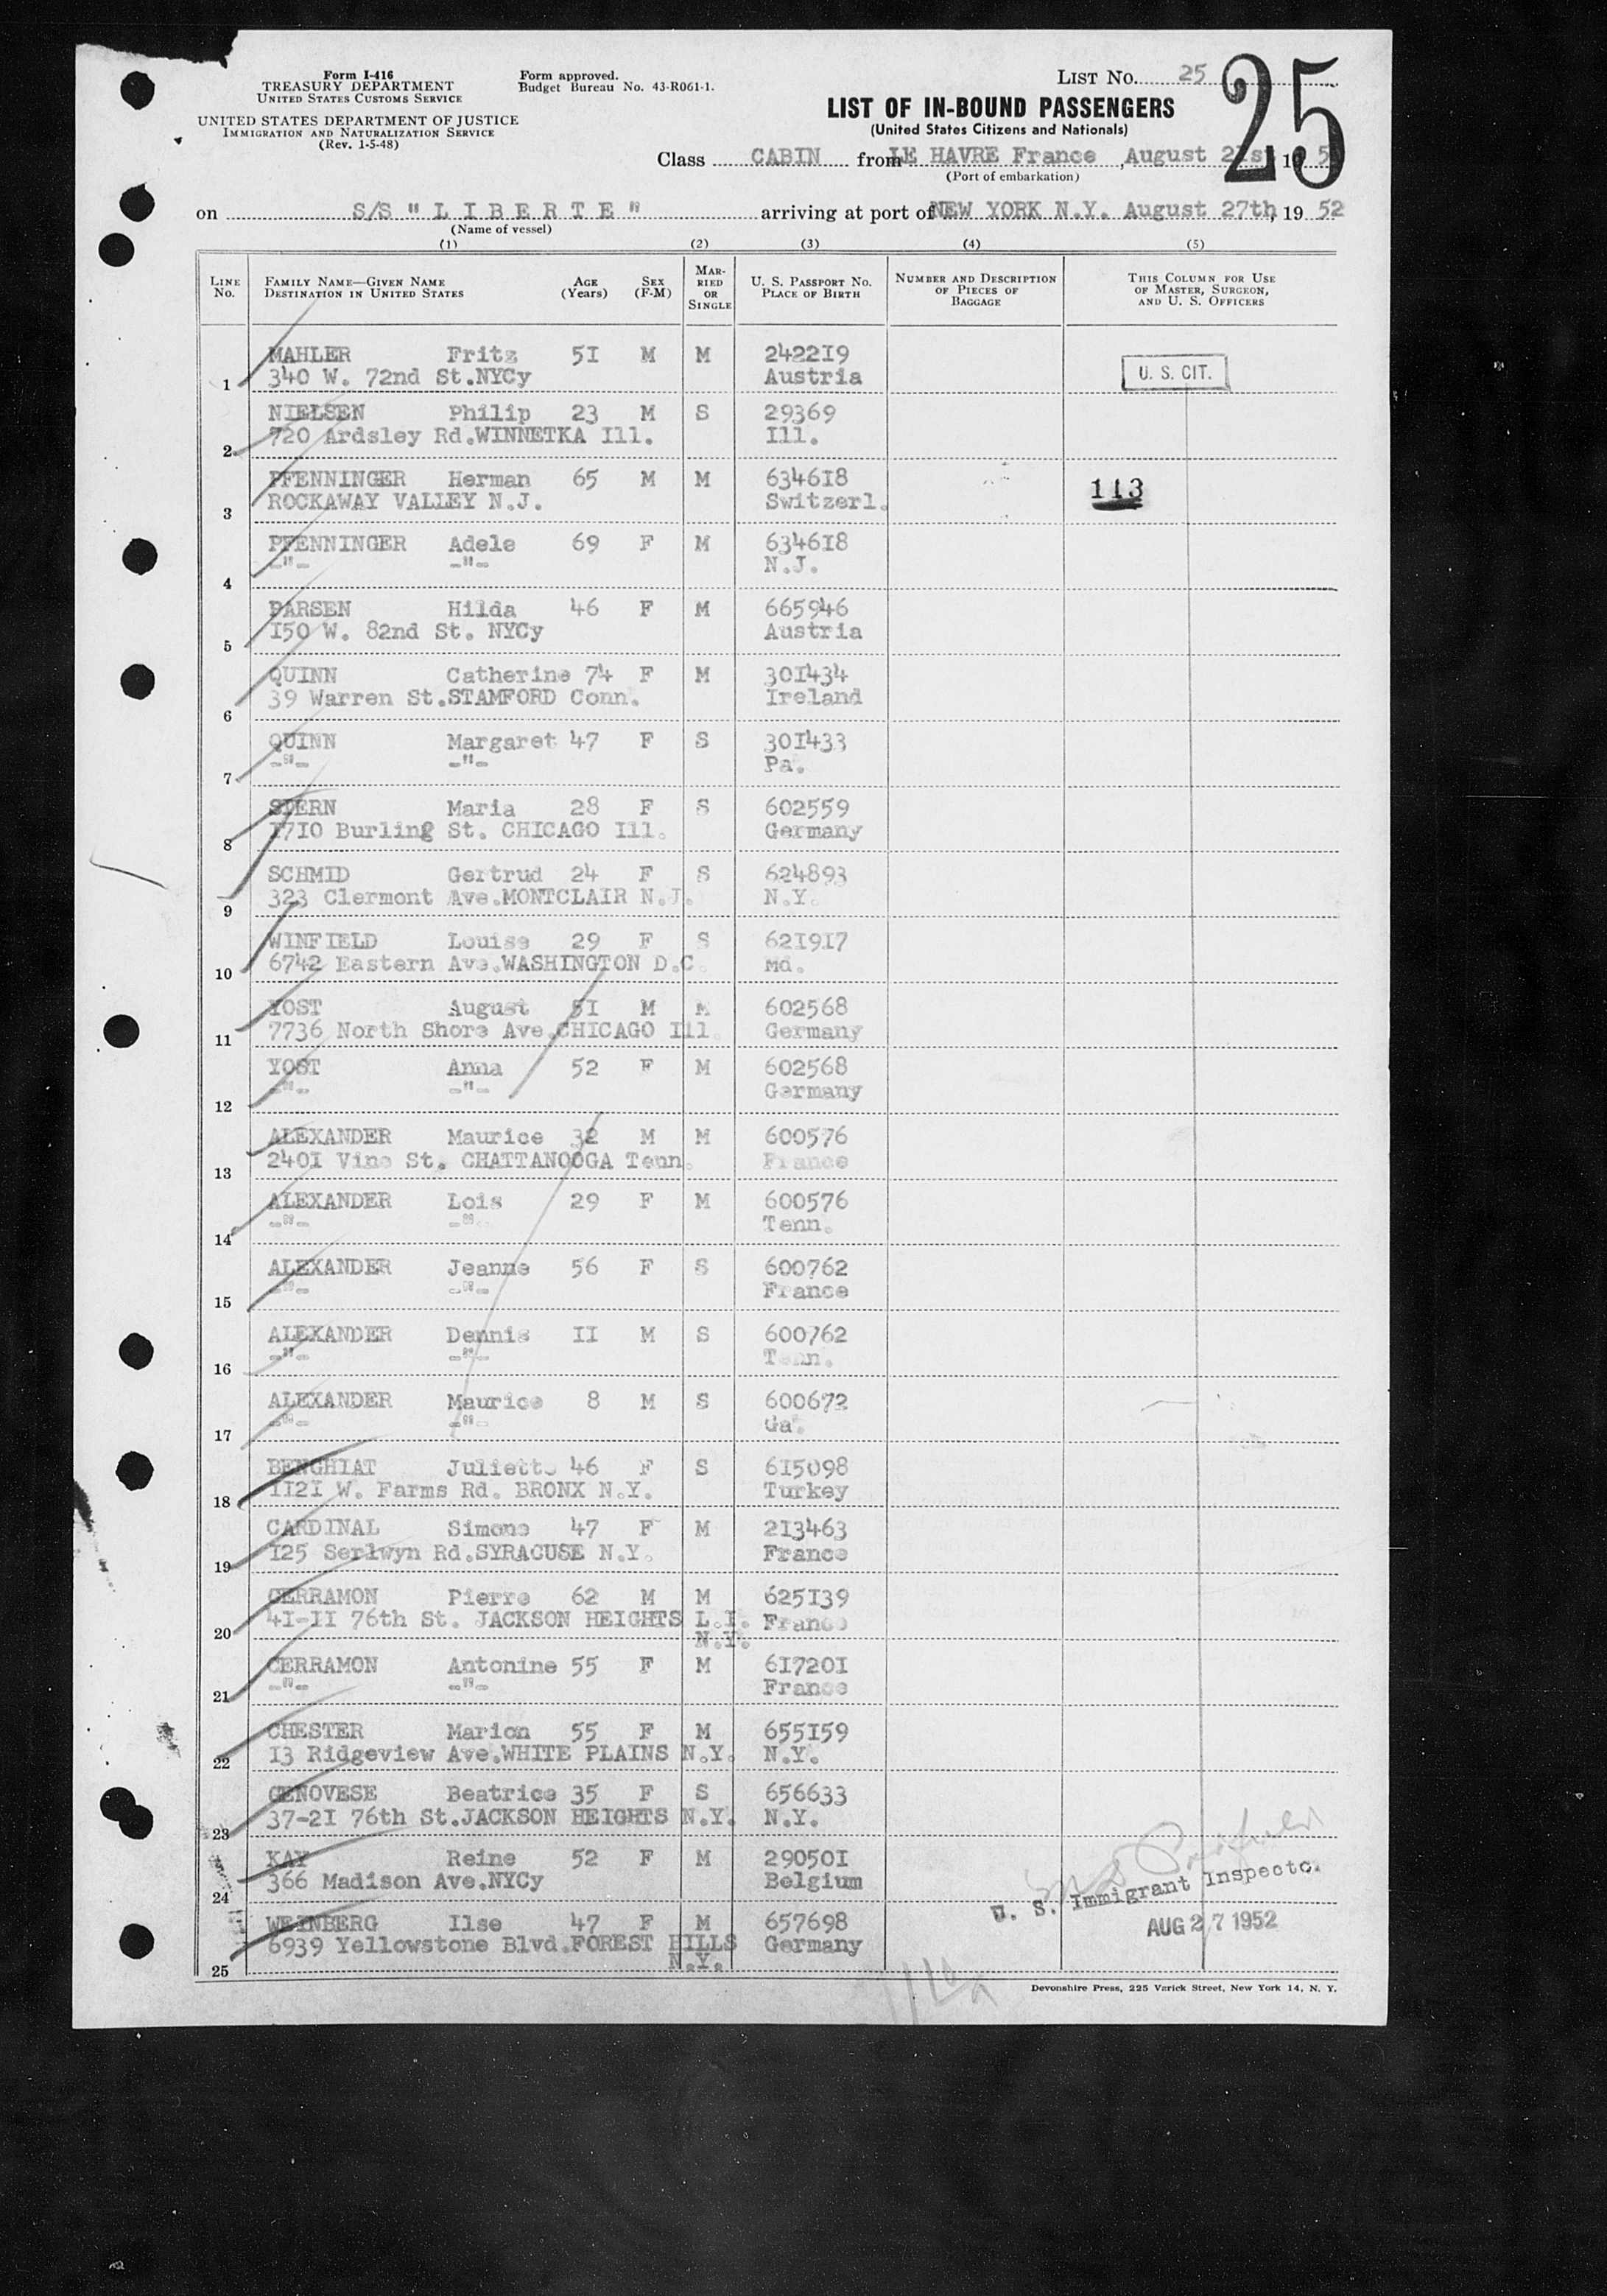 Form I-416
TREASURY DEPARTMENT
UNITED STATES CUSTOMS SERVICE
UNITED STATES DEPARTMENT OF JUSTICE
IMMIGRATION AND NATURALIZATION SERVICE
(Rev. 1-5-48)
Form approved.
Budget Bureau No. 43-R061-1.
LIST No. 25
25
LIST OF IN-BOUND PASSENGERS
(United States Citizens and Nationals)
Class CABIN from LE HAVRE France, August 21st, 19
(Port of embarkation)
on S/S "LIBERTE" arriving at port of NEW YORK N.Y. August 27th, 19 52
(Name of vessel)
(1) (2) (3) (4) (5)
LINE No. FAMILY NAME—GIVEN NAME DESTINATION IN UNITED STATES AGE (Years) SEX (F-M) MARRIED OR SINGLE U. S. PASSPORT NO. PLACE OF BIRTH NUMBER AND DESCRIPTION OF PIECES OF BAGGAGE THIS COLUMN FOR USE OF MASTER, SURGEON, AND U. S. OFFICERS
MAHLER Fritz 5I M M 2422I9
1 340 W. 72nd St.NYCy Austria U. S. CIT.
NIELSEN Philip 23 M S 29369
2 720 Ardsley Rd.WINNETKA Ill. Ill.
PFENNINGER Herman 65 M M 6346I8
3 ROCKAWAY VALLEY N.J. Switzerl. 113
PFENNINGER Adele 69 F M 6346I8
4 -"- -"- N.J.
PARSEN Hilda 46 F M 665946
5 I50 W. 82nd St. NYCy Austria
QUINN Catherine 74 F M 30I434
6 39 Warren St.STAMFORD Conn. Ireland
QUINN Margaret 47 F S 30I433
7 -"- -"- Pa.
STERN Maria 28 F S 602559
8 I7I0 Burling St. CHICAGO Ill. Germany
SCHMID Gertrud 24 F S 624893
9 323 Clermont Ave.MONTCLAIR N.J. N.Y.
WINFIELD Louise 29 F S 62I9I7
10 6742 Eastern Ave.WASHINGTON D.C. Md.
YOST August 5I M M 602568
11 7736 North Shore Ave.CHICAGO Ill. Germany
YOST Anna 52 F M 602568
12 -"- -"- Germany
ALEXANDER Maurice 32 M M 600576
13 240I Vine St. CHATTANOOGA Tenn. France
ALEXANDER Lois 29 F M 600576
14 -"- -"- Tenn.
ALEXANDER Jeanne 56 F S 600762
15 -"- -"- France
ALEXANDER Dennis II M S 600762
16 -"- -"- Tenn.
ALEXANDER Maurice 8 M S 600672
17 -"- -"- Ga.
BENGHIAT Juliette 46 F S 6I5098
18 II2I W. Farms Rd. BRONX N.Y. Turkey
CARDINAL Simone 47 F M 2I3463
19 I25 Serlwyn Rd.SYRACUSE N.Y. France
CERRAMON Pierre 62 M M 625I39
20 4I-II 76th St. JACKSON HEIGHTS L.I. France
N.Y.
CERRAMON Antonine 55 F M 6I720I
21 -"- -"- France
CHESTER Marion 55 F M 655I59
22 I3 Ridgeview Ave.WHITE PLAINS N.Y. N.Y.
GENOVESE Beatrice 35 F S 656633
23 37-2I 76th St.JACKSON HEIGHTS N.Y. N.Y.
KAY Reine 52 F M 29050I
24 366 Madison Ave.NYCy Belgium
WEINBERG Ilse 47 F M 657698
6939 Yellowstone Blvd.FOREST HILLS Germany
25 N.Y.
U. S. Immigrant Inspector.
AUG 27 1952
Devonshire Press, 225 Varick Street, New York 14, N. Y.